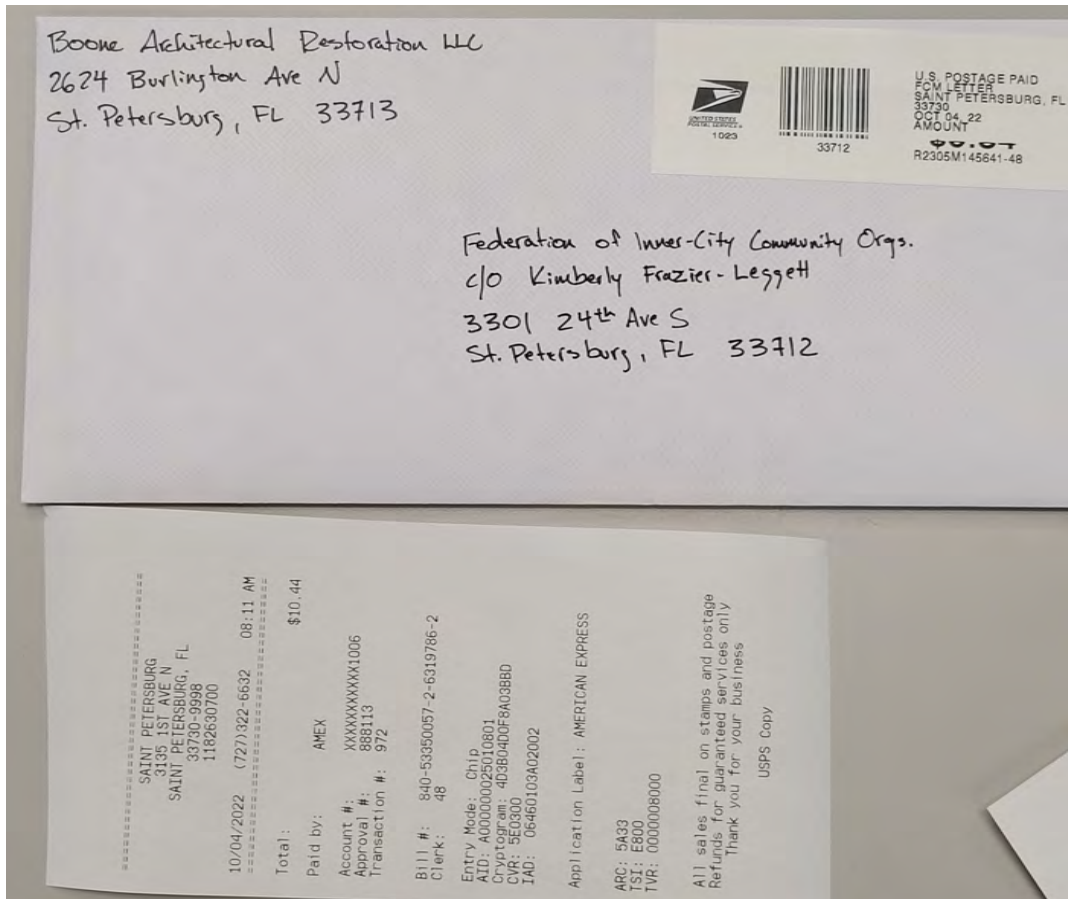 Boone Architectural Restoration LLC
2624 Burlington Ave N
St. Petersburg, FL 33713
UNITED STATES
POSTAL SERVICE®
1023
33712
U.S. POSTAGE PAID
FCM LETTER
SAINT PETERSBURG, FL
33730
OCT 04, 22
AMOUNT
R2305M145641-48
Federation of Inner-City Community Orgs.
c/o Kimberly Frazier-Leggett
3301 24th Ave S
St. Petersburg, FL 33712
SAINT PETERSBURG
3135 1ST AVE N
SAINT PETERSBURG, FL
33730-9998
1182630700
10/04/2022 (727)322-6632 08:11 AM
Total: $10.44
Paid by: AMEX
Account #: XXXXXXXXXXX1006
Approval #: 888113
Transaction #: 972
Bill #: 840-53350057-2-6319786-2
Clerk: 48
Entry Mode: Chip
AID: A000000025010801
Cryptogram: 4D3B04D0F8A03BBD
CVR: 5E0300
IAD: 06460103A02002
Application Label: AMERICAN EXPRESS
ARC: 5A33
TSI: E800
TVR: 0000008000
All sales final on stamps and postage
Refunds for guaranteed services only
Thank you for your business
USPS Copy